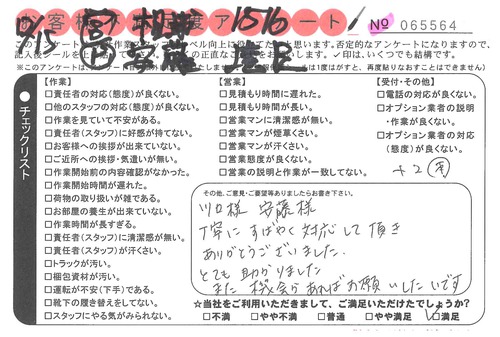 お客様満足度アンケート No 065564
9/15 1516
このアンケートは作業スタッフのレベル向上に役立てたいと思います。否定的なアンケートになりますので、
※このアンケートは
【作業】
□責任者の対応(態度)が良くない。
□他のスタッフの対応(態度)が良くない。
□作業を見ていて不安がある。
□責任者(スタッフ)に好感が持てない。
□お客様への挨拶が出来ていない。
□ご近所への挨拶・気遣いが無い。
□作業開始前の内容確認がなかった。
□作業開始時間が遅れた。
□荷物の取り扱いが雑である。
□お部屋の養生が出来ていない。
□作業時間が長すぎる。
□責任者(スタッフ)に清潔感が無い。
□責任者(スタッフ)が汗くさい。
□トラックが汚い。
□梱包資材が汚い。
□運転が不安(下手)である。
□靴下の履き替えをしてない。
□スタッフにやる気がみられない。
チェックリスト
【営業】
□見積もり時間に遅れた。
□見積もり時間が長い。
□営業マンに清潔感が無い。
□営業マンが煙草くさい。
□営業マンが汗くさい。
□営業態度が良くない。
□営業の説明と作業が一致してない。
【受付・その他】
□電話の対応が良くない。
□オプション業者の説明
・作業が良くない。
□オプション業者の対応
(態度)が良くない。
その他、ご意見・ご要望等ありましたらお書き下さい。
安藤様
丁寧にすばやく対応して頂き
ありがとうございました。
とても助かりました
また機会があればお願いしたいです
☆当社をご利用いただきまして、ご満足いただけたでしょうか?
□不満 □やや不満 □普通 □やや満足 □満足